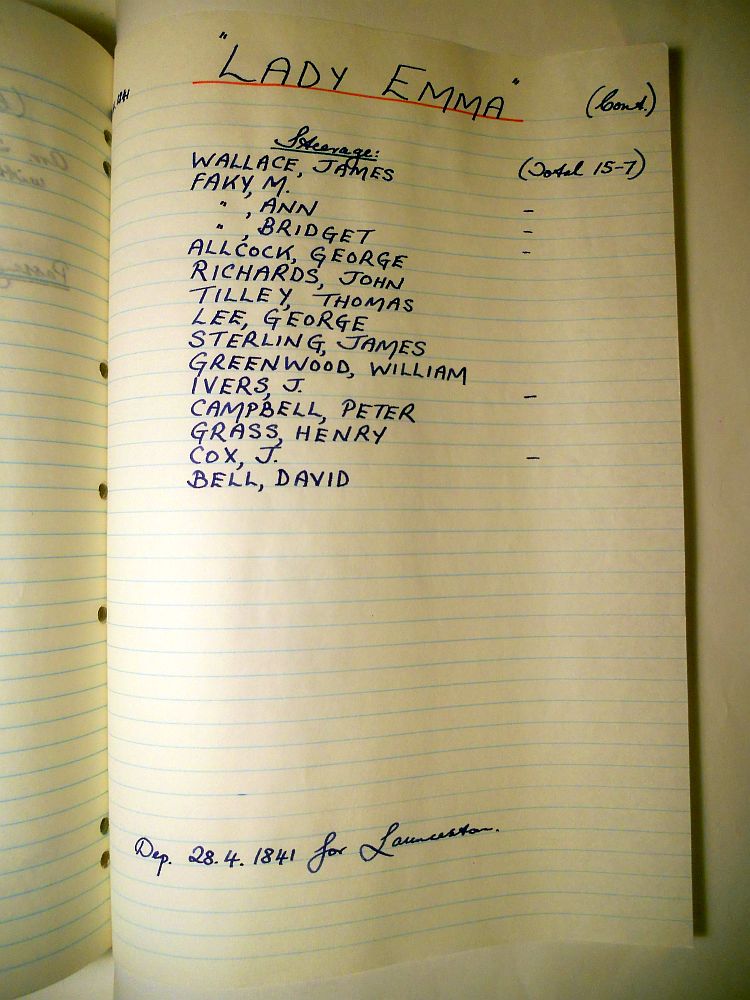 "LADY EMMA"
(Cont.)
Steerage:
(Total 15-7)
WALLACE, JAMES
FAKY, M.
" , ANN -
" , BRIDGET -
ALLCOCK, GEORGE -
RICHARDS, JOHN
TILLEY, THOMAS
LEE, GEORGE
STERLING, JAMES
GREENWOOD, WILLIAM
IVERS, J. -
CAMPBELL, PETER
GRASS, HENRY
COX, J. -
BELL, DAVID
Dep. 28.4.1841 for Launceston.